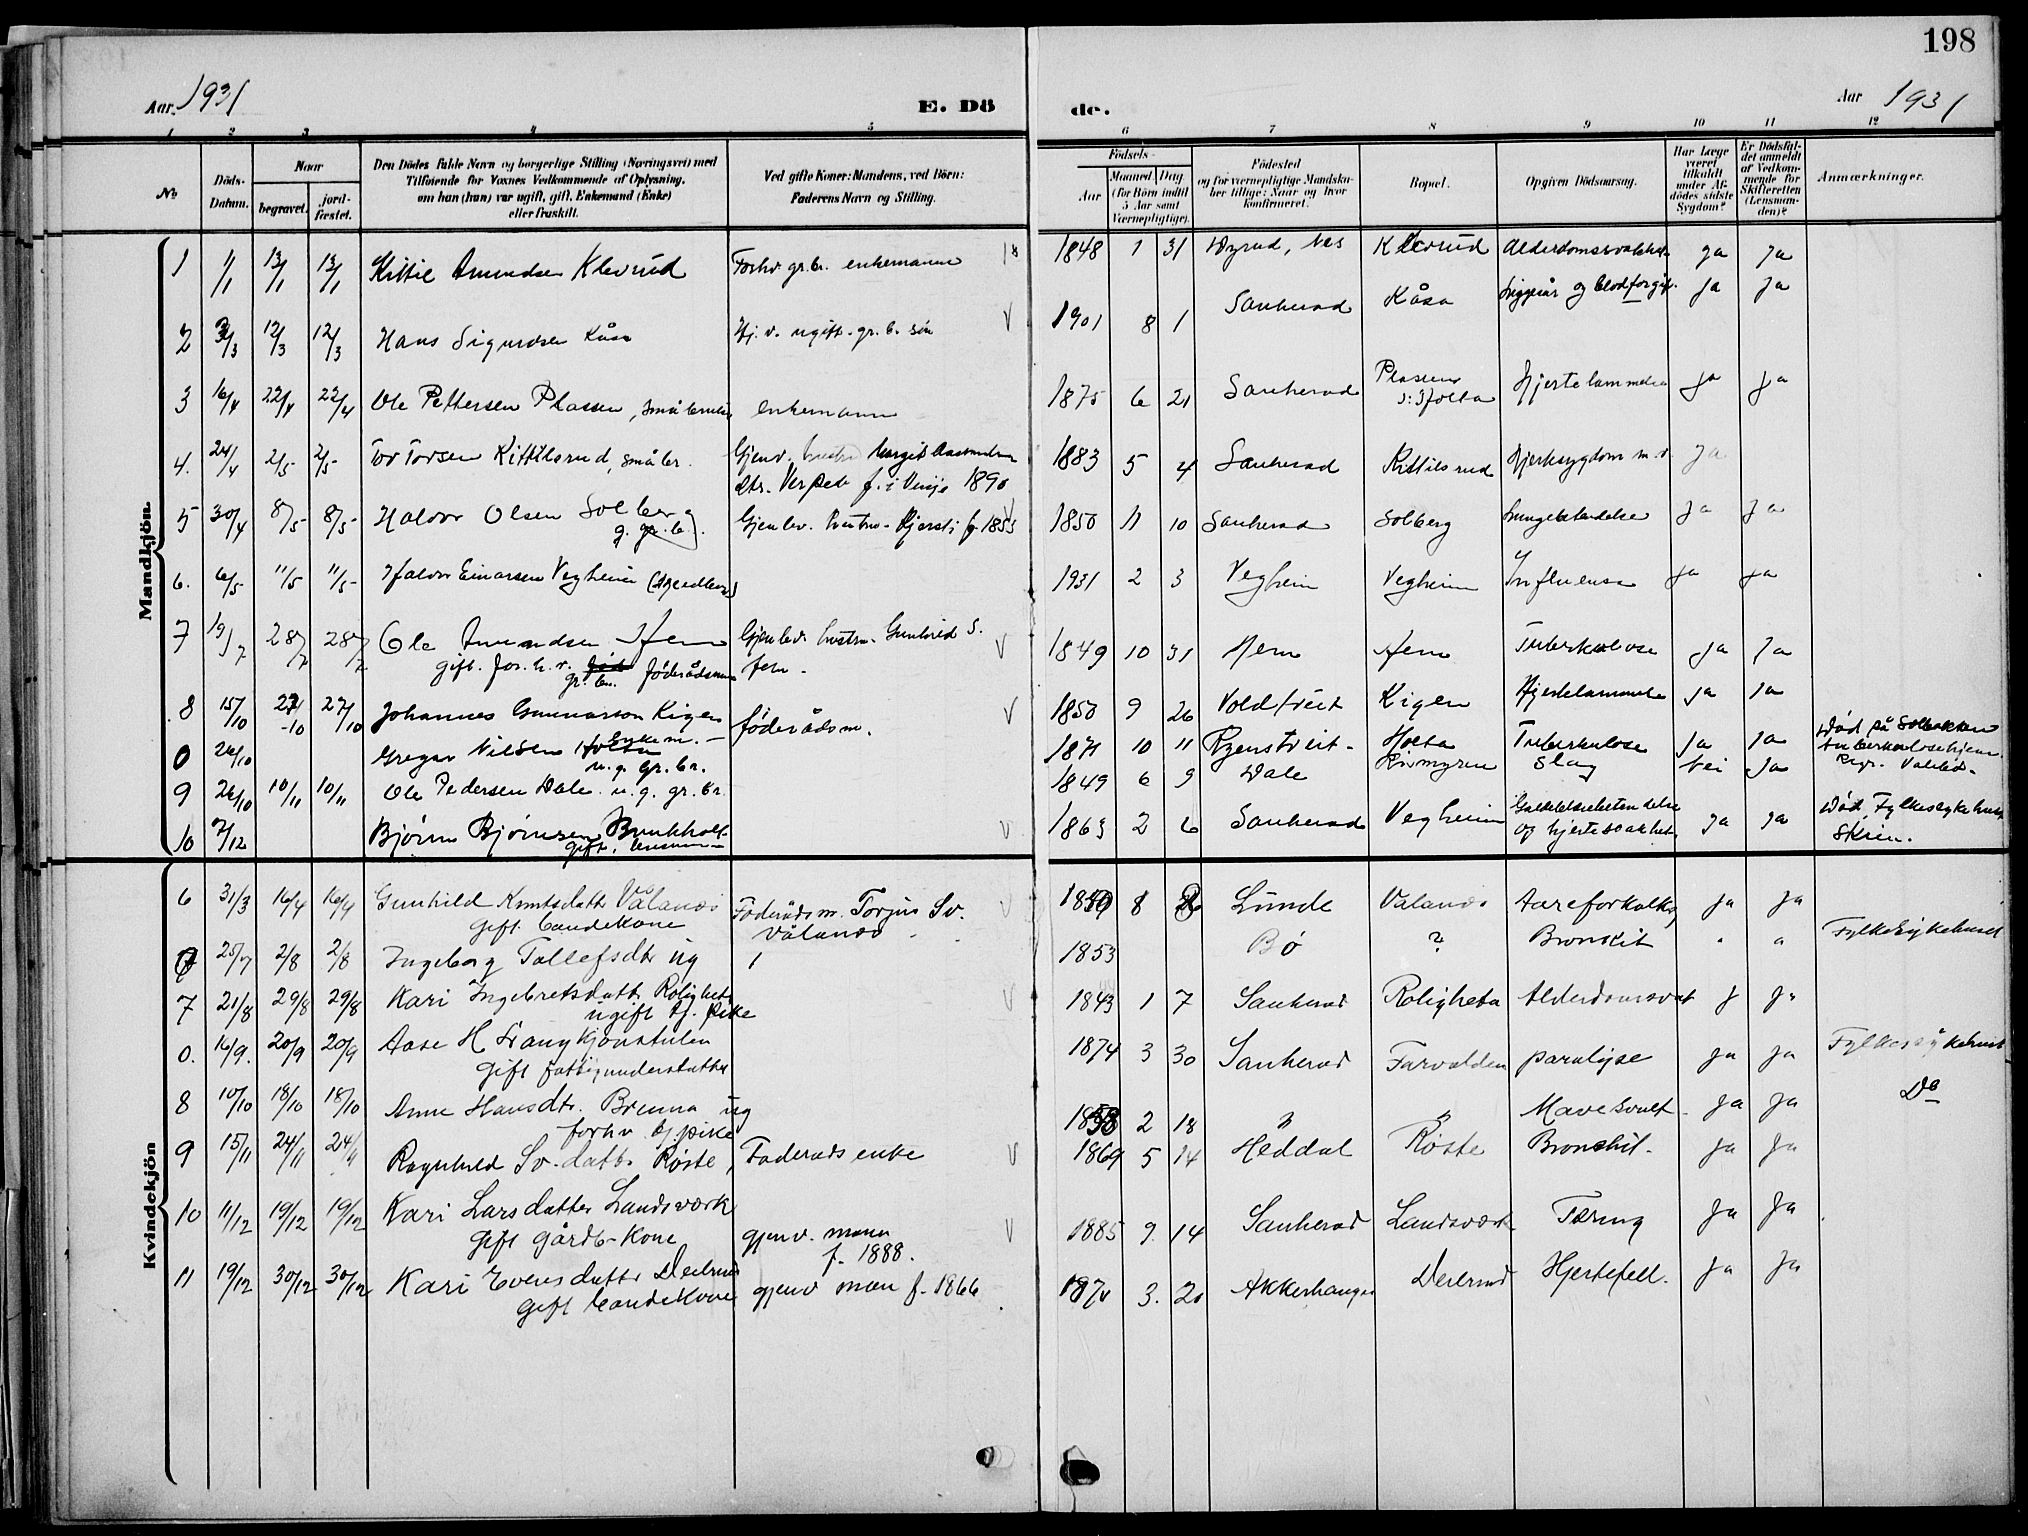 198
Aar. 1931 E. Dö
de. Aar 1931
1 2 3 4 5 6 7 8 9 10 11 12
№
Döds-Datum.
Naar
begravet.
jord-fæstet.
Den Dödes fulde Navn og borgerlige Stilling (Næringsvei) med
Tilföiende for Voxnes Vedkommende af Oplysning,
om han (hun) var ugift, gift, Enkemand (Enke)
eller fraskilt.
Ved gifte Koner: Mandens, ved Börn:
Faderens Navn og Stilling.
Födsels-
Aar
Maaned. Dag.
(for Börn indtil
5 Aar samt
Værnepligtige).
Födested
og for værnepligtige Mandska-
ber tillige: Naar og hvor
konfirmeret.
Bopæl.
Opgiven Dödsaarsag.
Har Læge
været
tilkaldt
under Af-
dødes sidste
Sygdom?
Er Dödsfal-
det anmeldt
af Vedkom-
mende for
Skifteretten
(Lensman-
den)?
Anmærkninger.
Mandkjön.
1 1/1 13/1 13/1 Kittil Amundsen Klevrud Forhv. gr.br. enkemann 1848 1 31 Nes Klevrud Alderdomssvakhet ja ja
2 3/3 12/3 12/3 Hans Sigurdsen Kåsa ugift. gr. b. søn 1901 8 1 Sauherad Kåsa og blodforgif. ja ja
3 16/4 22/4 22/4 Ole Pettersen Plassen, småbruker enkemann 1875 6 21 Sauherad Plassen Hjertelammelse ja ja
4. 24/4 2/5 2/5 Tor Torsen Kittilsrud, småbr. Gjenv. hustru Margit
dtr. f. i Vinje 1890 1883 5 4 Sauherad Kittilsrud Hjertesygdom ja
5 30/4 8/5 8/5 Halvor Olsen Solberg
g. gr. b. Gjenlev. hustru Kjersti f. 1853 1850 11 10 Sauherad Solberg Lungebetendelse ja ja
6. 6/5 11/5 11/5 Halvor Einarsen Vegheim 1931 2 3 Vegheim Vegheim Influensa ja ja
7 19/7 28/7 28/7 Ole Amundsen Hem Gjenlev. hustru. Gunhild S.
gift. gr. br. føderådsmann Hem 1849 10 31 Hem Hem Tuberkulose ja ja
8 15/10 27/10 27/10 Johannes Gunnarson Kigen føderådsm. 1850 9 26 Voldtveit Kigen Hjertelammelse ja ja
Enkem.
0 26/10 Gregar Nilsen Holta
u.g. gr. br. 1871 10 11 Holta Tuberkulose ja ja Død på Solbakken
tuberkulosehjem
9 26/10 10/11 10/11 Ole Pedersen Dale. u.g. gr. br. 1849 6 9 Dale Slag Nei ja
10 7/12 Bjørn Bjørnsen
gift. 1863 2 6 Sauherad Vegheim
og hjertesvakhet ja ja Død, Fylkessykehuset
Skien.
Kvindekjön
6 31/3 16/4 16/4 Gunhild Knutsdatter Vålanes
gift Føderådsm. Torjus Sv.
Vålanes 1850 8 Lunde Valanes Aareforkalkn. ja ja
25/7 2/8 2/8 Ingeborg Tollefsdtr. ug 1853 Bø ? Bronkit " " Fylkesykehuset
7 21/8 29/8 29/8 Kari Ingebretsdatter Roligheta
ugift tj. pike 1843 1 7 Sauherad Roligheta Alderdomssvak j ja
0. 16/9. 20/9 20/9 Aase H.
gift fattigunderstøttet 1874 3 30 Sauherad Farvolden paralyse ja ja Fylkessykehuset
8 10/10 18/10 18/10 Anne Hansdtr. Brenna ug
forhv tj. pike 1858 2 18 " " Mavesvulst ja ja Do
9 15/11 24/11 24/11 Ragnhild Sv.datter Røste, Føderådsenke 1869 5 14 Heddal Røste Bronchit. ja ja
10 11/12 19/12 19/12 Kari Larsdatter Landsverk
gift gårdb-kone gjenv. mann
f. 1888. 1885 9. 14 Sauherad Landsverk Tæring ja ja
11 19/12 30/12 30/12 Kari Evensdatter
gift gjenv man f. 1866 3. 20 Akkerhaugen Hjertefeil. ja ja